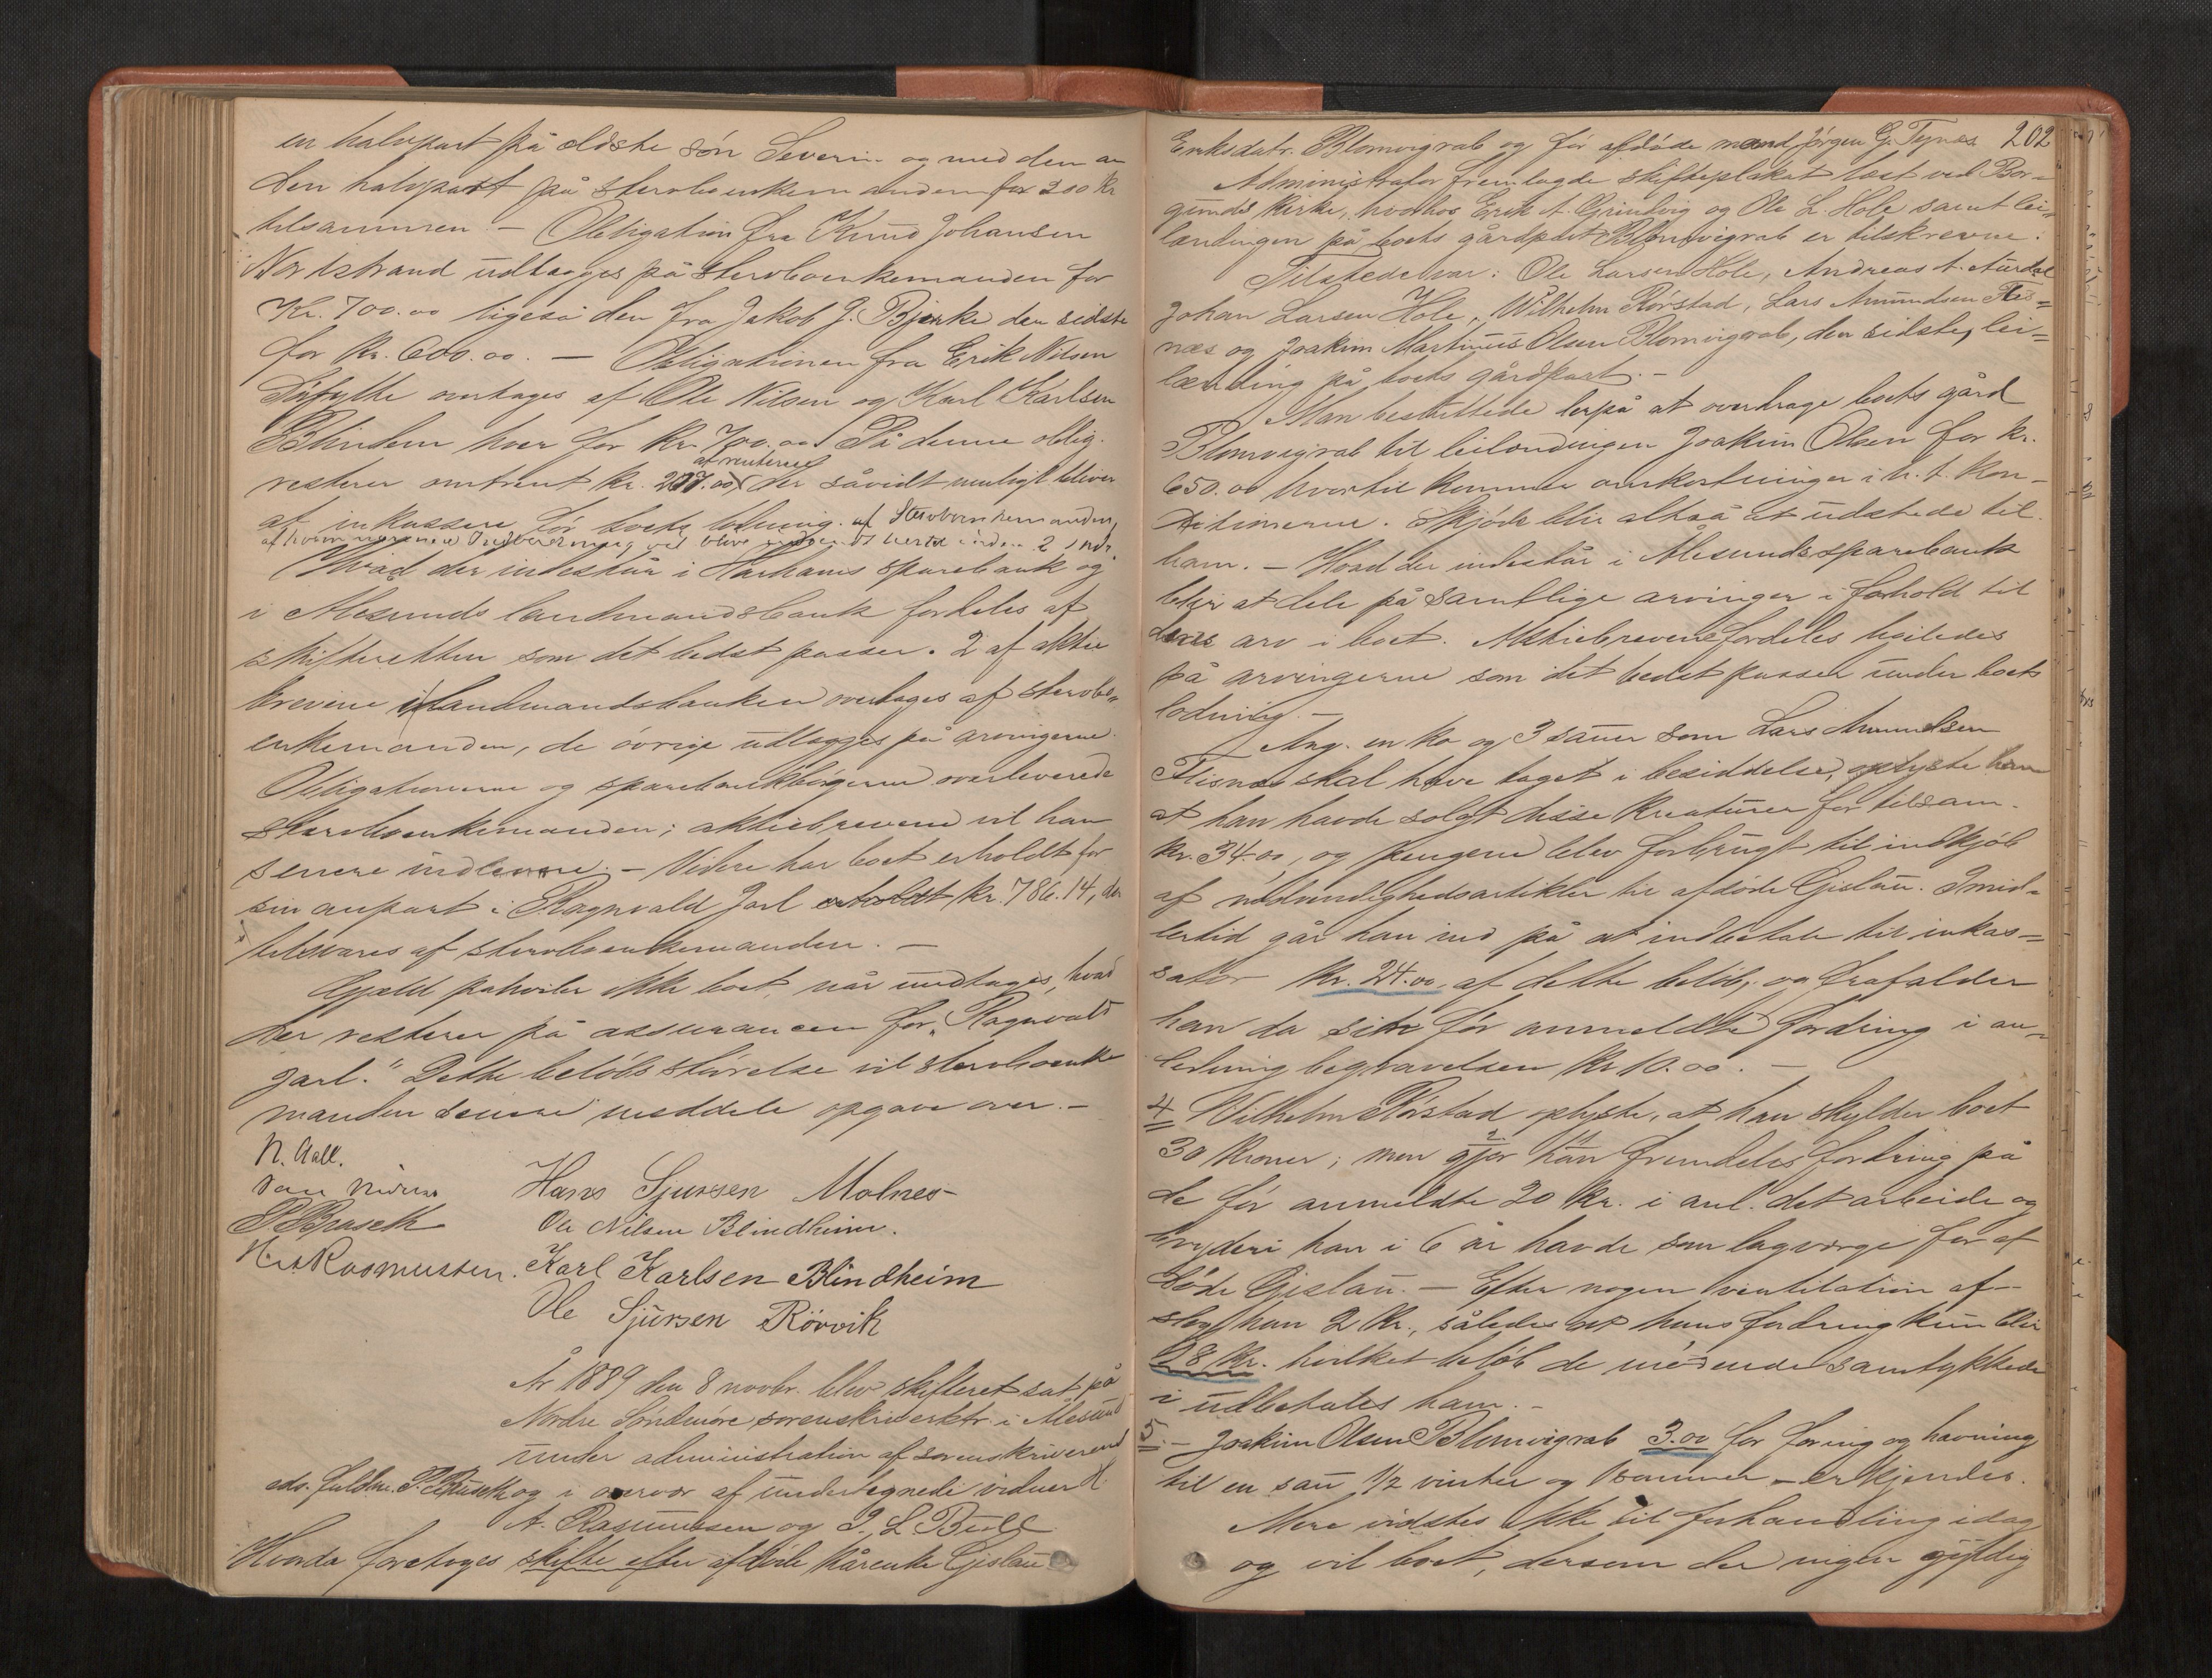 en halvpart på ældste søn Severin og med den an
den halvpart på stervboenkem anden for 200 kr
tilsammen. — Obligation fra Knud Johansen
Nordstrand udlægges på stervboenkemanden for
Kr. 700.00 ligeså den fra Jakob J. Bjerke den sidste
for kr. 600.00. — Obligationen fra Erik Nilsen
overtages af Ole Nilsen og Karl Karlsen
Blindem hver for Kr. 700.00. På denne oblig.
af renterne
resterer omtrent kr. 207.00, der såvidt muligt bliver
at inkassere før boets lodning. af Stervboenkemanden,
af hvem nærmere vil blive inden 2 mdr.
Hvad der indestår i Harhams sparebank og
i Alesunds landmandsbank fordeles af
skifteretten som det bedst passer. 2 af aktie
brevene i Landmandsbanken overtages af stervbo-
enkemanden, de øvrige udlægges på arvingerne.
Obligationerne og sparebankbøgerne overleverede
stervboenkemanden; aktiebrevene vil han
senere indlevere. — Videre har boet erholdt for
sin anpart i Ragnvald Jarl erholdt kr. 786.14, der
tilsvares af stervboenkemanden. —
Gjæld påhviler ikke boet, når undtages, hvad
der resterer på assurancen for "Ragnvald
Jarl." Dette beløbs størrelse vil stervboenke
manden senere meddele opgave over. —
N. Aall.
Hans Sjursen Molnes
P Busch
Ole Nilsen Blindheim.
Rasmussen. Karl Karlsen Blindheim
Ole Sjursen Rövvik
År 1889 den 8 novbr. blev skifteret sat på
Nordre Søndmøre sorenskriverktr. i Alesund
under administration af sorenskriverens
eds. fuldm. P. Busch og i overvær af undertegnede vidner
A. Rasmussen og J. L. Bull
Hvorda foretoges skifte efter afdøde kårenke Gislau
202
Eriksdatr. Blomvigrab og før afdøde mand Jørgen G. Tynes
Administrator fremlagde skifteplakat læst ved Bor-
gunds kirke, hvorhos Erik A. Grimstvig og Ole L. Hole samt lei-
lændingen på boets gårdpart Blomvigrab er tilskrevne.
Tilstede var: Ole Larsen Hole, Andreas A. Aurdal
Johan Larsen Hole, Wilhelm Rørstad, Lars Amundsen Flis-
næs og Joakim Martinus Olsen Blomvigrab, den sidste, lei-
lænding på boets gårdpart. —
Man besluttede herpå at overdrage boets gård
Blomvigrab til leilændingen Joakim Olsen for kr.
650.00 hvortil kommer omkostninger i h. t. kon-
ditionerne. Skjøde blir altså at udstede til
ham. — Hvad der indestår i Alesunds sparebank
blir at dele på samtlige arvinger i forhold til
deres arv i boet. Aktiebrevene fordeles ligeledes
på arvingerne som det bedst passer under boets
lodning. —
Ang. en ko og 3 sauer som Lars Amundsen
Flisnæs skal have taget i besiddelse, oplyste han
at han havde solgt disse kreaturer for tilsam.
kr. 34.00, og pengene blev forbrugt til indkjøb
af nødvendighedsartikler til afdøde Gislau. Imid-
lertid går han ind på at indbetale til inkas-
sator kr. 24.00 af dette beløb, og frafalder
han da sin før anmeldte fordring i an-
ledning begravelsen kr 10.00. —
4 Wilhelm Rørstad oplyste, at han skylder boet
30 kroner; men gjør han fremdeles fordring på
de før anmeldte 20 kr. i anl. det arbeide og
bryderi han i 6 år havde som lagværge for af
døde Gislau. — Efter nogen ventilation af-
slog han 2 kr., således at hans fordring kun blir
18 kr. hvilket beløb de mødende samtykkede
i udbetales ham. —
5. — Joakim Olsen Blomvigrab 3.00 for foring og havning
til en sau 1/2 vinter og 1 sommer — erkjendes.
Mere vidstes ikke til forhandling idag
og vil boet, dersom der ingen gyldig